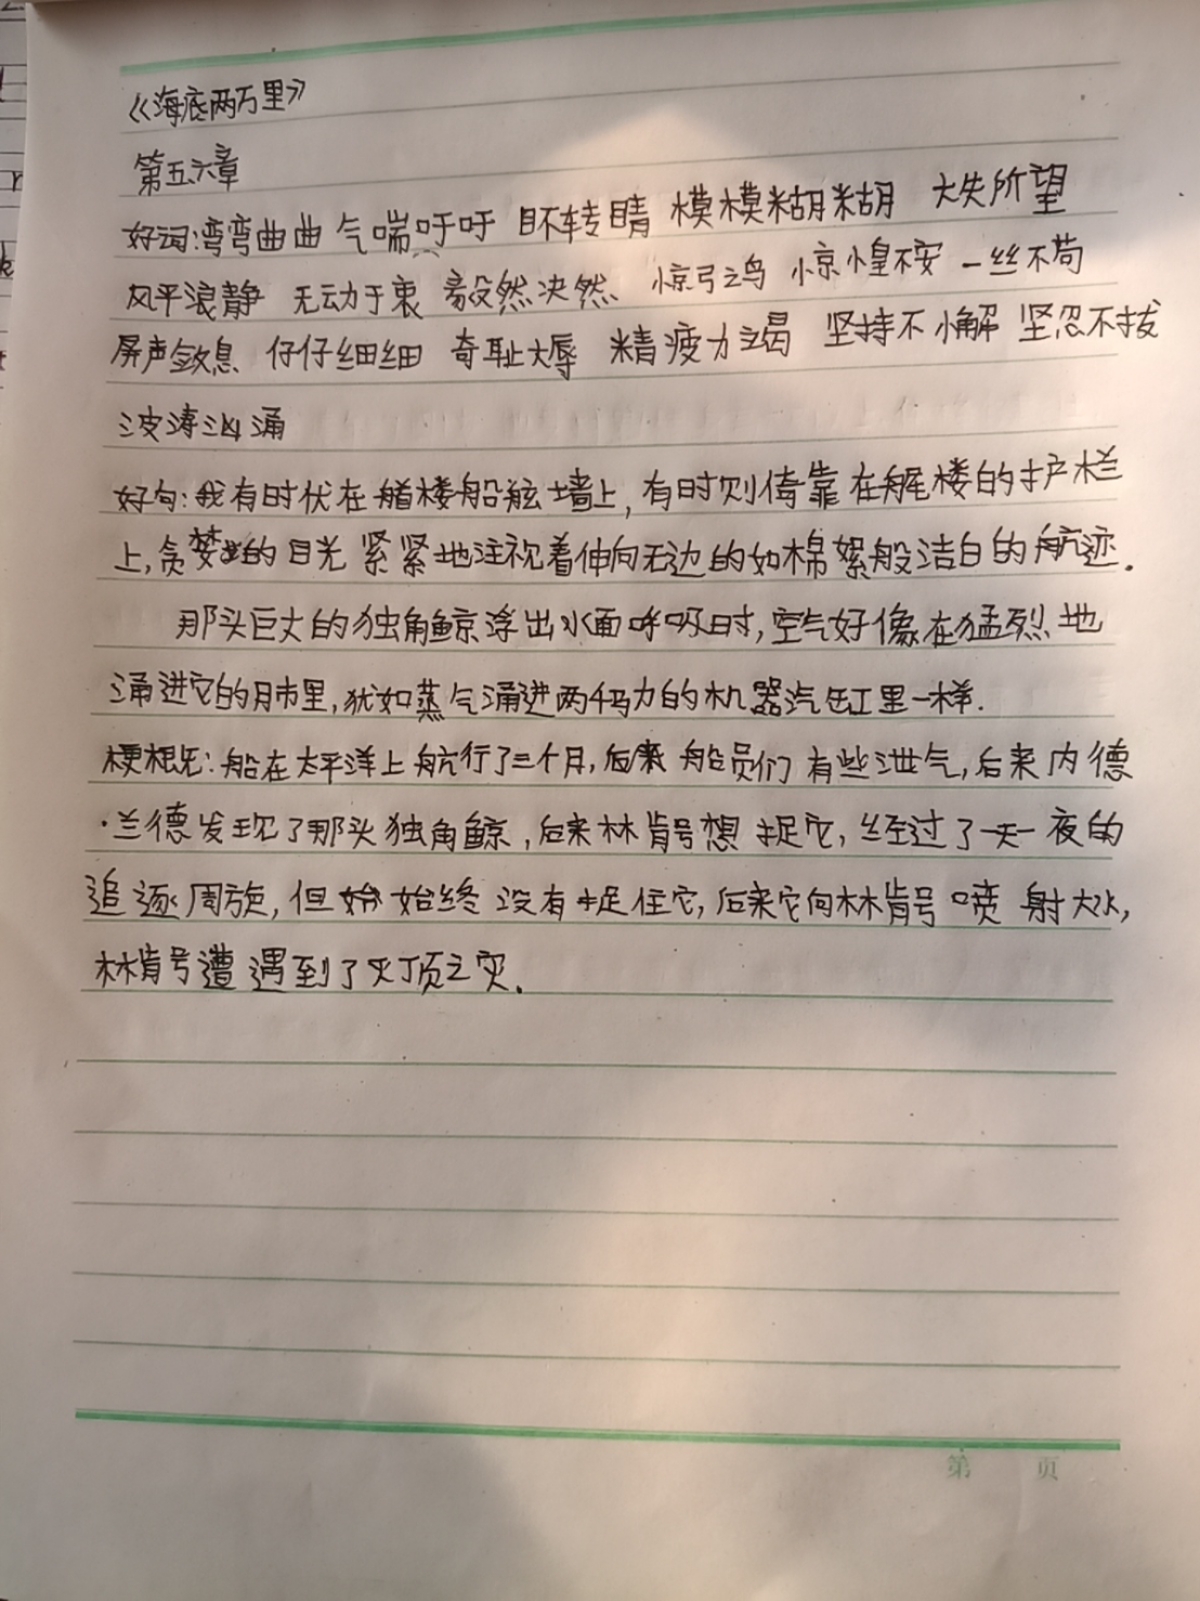 《海底两万里》
第五六章
好词:弯弯曲曲 气喘吁吁 目不转睛 模模糊糊 大失所望
风平浪静 无动于衷 毅然决然 惊弓之鸟 惊惶不安 一丝不苟
屏声敛息 仔仔细细 奇耻大辱 精疲力竭 坚持不懈 坚忍不拔
波涛汹涌
好句:我有时伏在艏楼船舷墙上,有时则倚靠在艉楼的护栏
上,贪婪的目光紧紧地注视着伸向无边的如棉絮般洁白的航迹.
那头巨大的独角鲸浮出水面呼吸时,空气好像在猛烈地
涌进它的肺里,犹如蒸气涌进两千马力的机器汽缸里一样.
梗概:船在太平洋上航行了三个月,后来船员们有些泄气,后来内德
·兰德发现了那头独角鲸,后来林肯号想捉它,经过了一天一夜的
追逐周旋,但始终没有捉住它,后来它向林肯号喷射大水,
林肯号遭遇到了灭顶之灾.
第 页